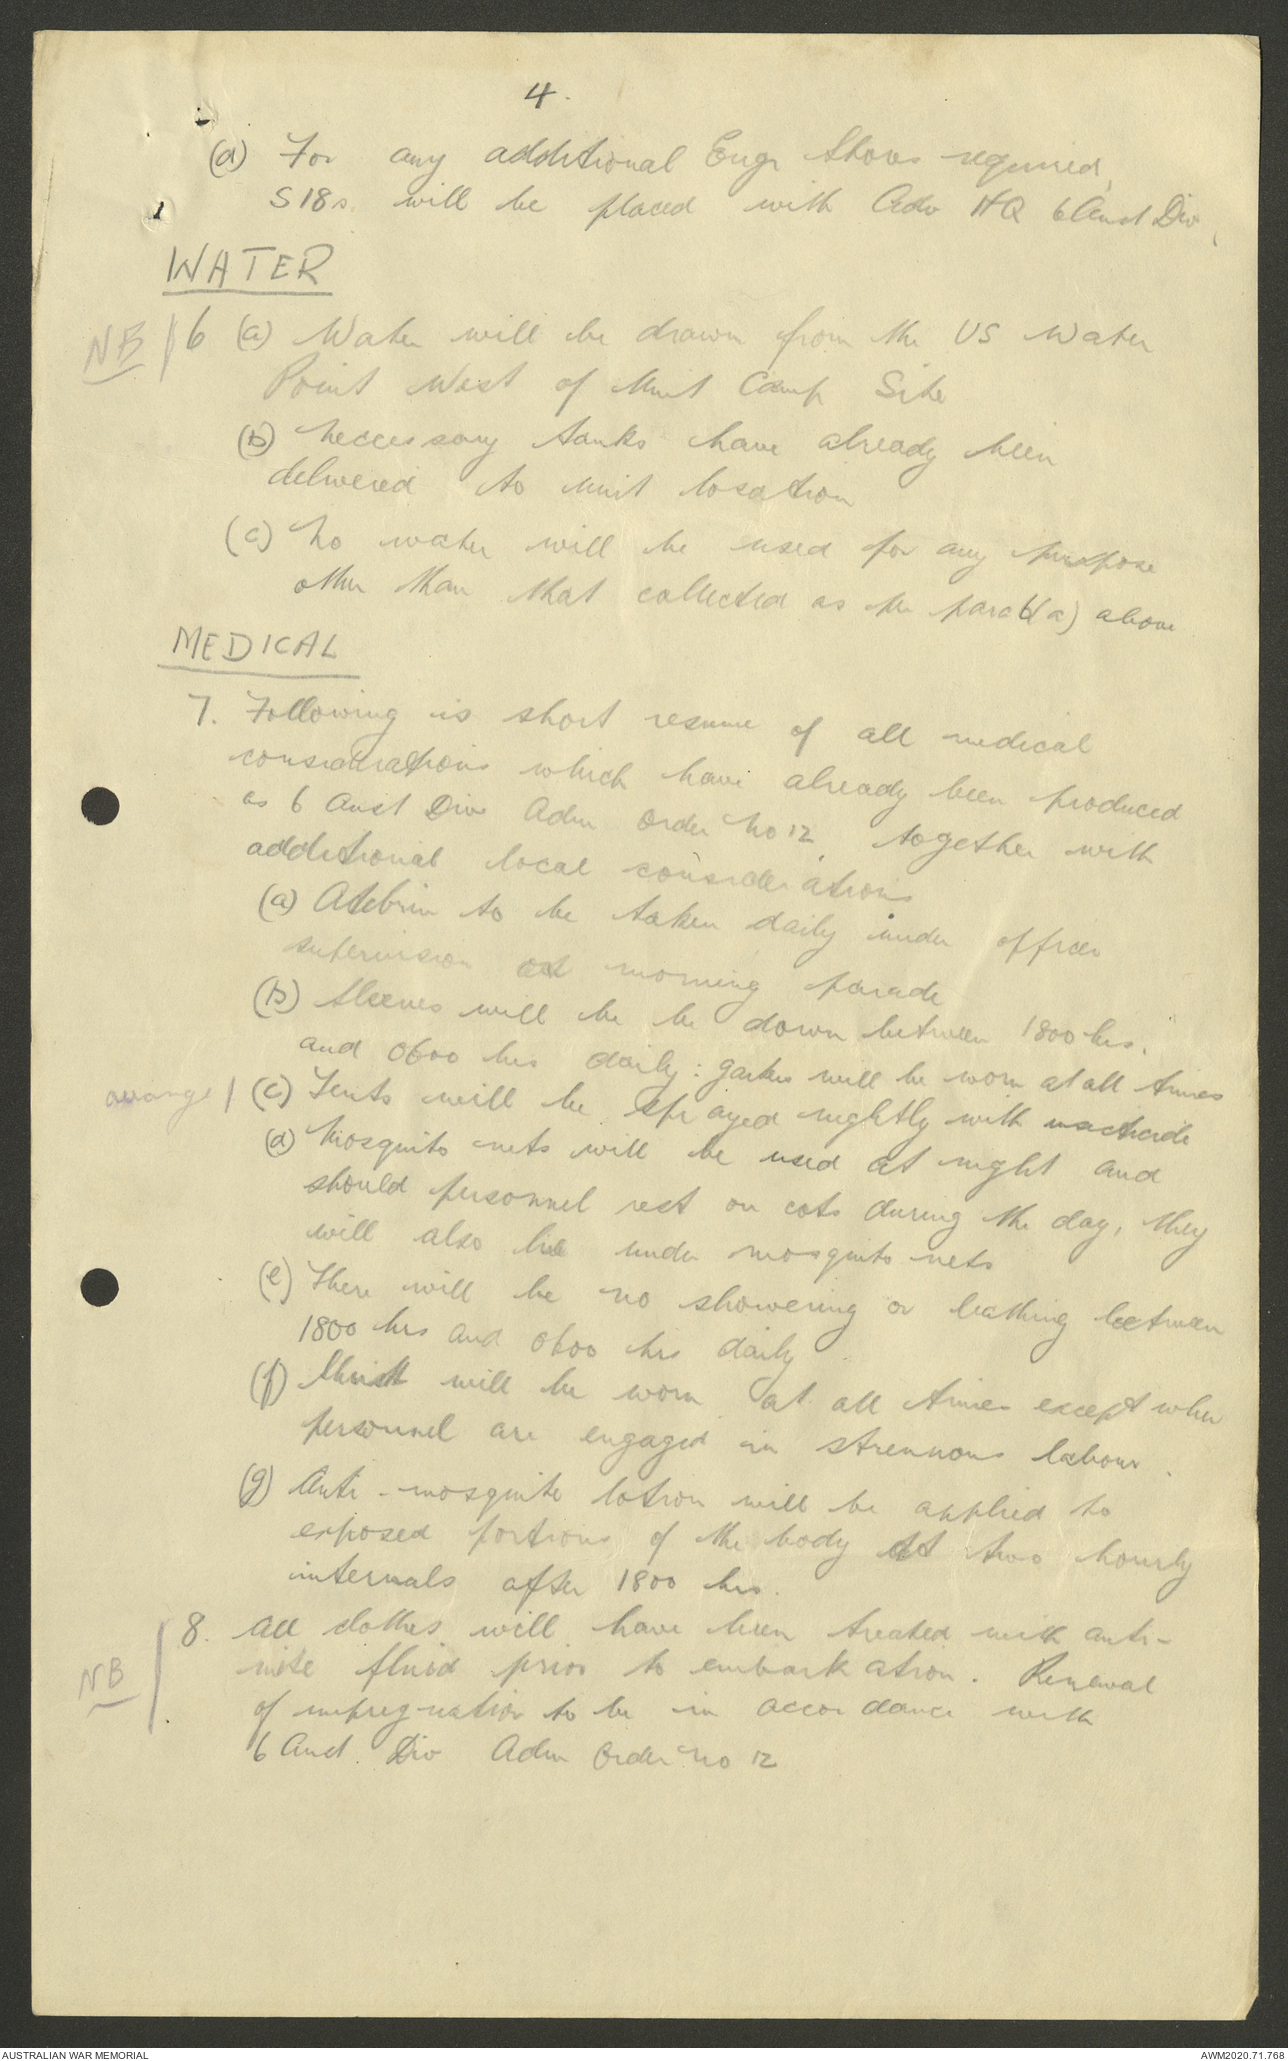 4.
(d) For any additional Engr Stores required,
S18s will be placed with Adv HQ 6 Aust Div.
WATER
NB 6 (a) Water will be drawn from the US Water
Point West of Unit Camp Site
(b) Neccessary tanks have already been
delivered to unit location
(c) No water will be used for any purpose
other than that collected as per para 6(a) above
MEDICAL
7. Following is short resume of all medical
considerations which have already been produced
as 6 Aust Div Adm Order No 12, together with
additional local considerations
(a) Atebrin to be taken daily under officer
supervision at morning parade
(b) Sleeves will be be down between 1800 hrs.
and 0600 hrs daily: gaiters will be worn at all times
arrange (c) Tents will be sprayed nightly with
(d) Mosquito nets will be used at night and
should personnel rest on cots during the day, they
will also be under mosquito nets
(e) There will be no showering or bathing between
1800 hrs and 0600 hrs daily
(f) will be worn at all times except when
personnel are engaged in strenuous labour.
(g) Anti-mosquito lotion will be applied to
exposed portions of the body at two hourly
intervals after 1800 hrs.
NB 8. All clothes will have been treated with anti-
mite fluid prior to embarkation. Renewal
of impregnation to be in accordance with
6 Aust. Div Adm Order No 12
AUSTRALIAN WAR MEMORIAL
AWM2020.71.768